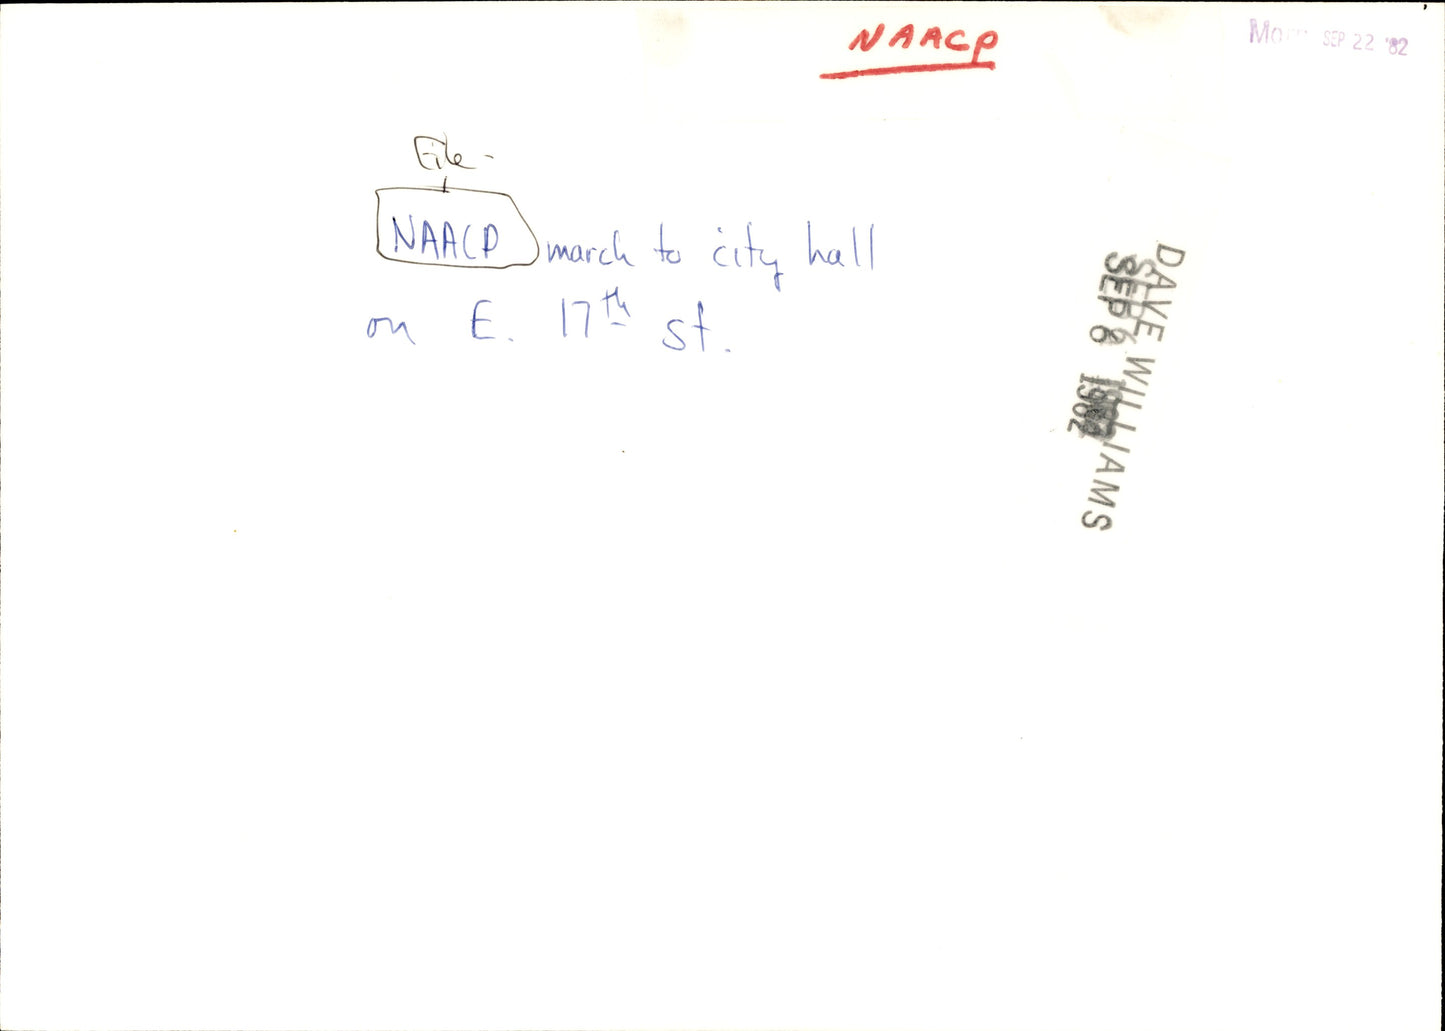 NAACP
SEP 22 '82
File -
NAACP march to city hall
on E. 17th st.
DAVE WILLIAMS
SEP 6 1982